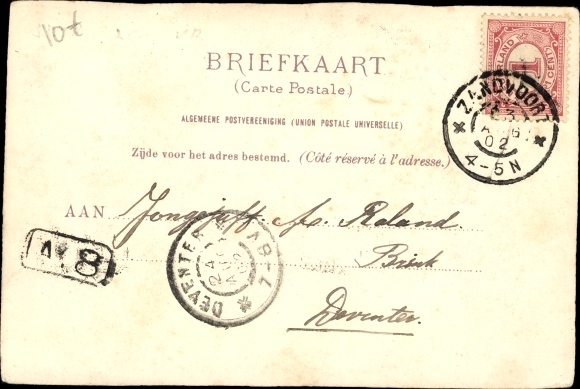 10 ct
BRIEFKAART
(Carte Postale.)
ALGEMEENE POSTVEREENIGING (UNION POSTALE UNIVERSELLE)
Zijde voor het adres bestemd. (Côté réservé à l'adresse.)
1
CENT
ZANDVOORT
02
4-5N
AAN Jongejuff. A. Roland
Brink
Deventer.
DEVENTER
8